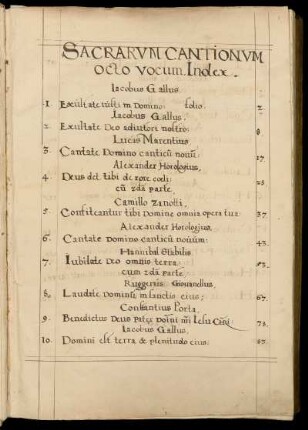 SACRARVM CANTIONVM
octo vocum. Index.
Iacobus Gallus.
1. Exultate iusti in Domino: folio. 2
Iacobus Gallus.
2. Exultate Deo adiutori nostro: 8
Lucas Marentius.
3. Cantate Domino canticũ nouũ: 17
Alexander Horologius.
4. Deus det tibi de rore coeli:
cũ 2da parte.
Camillo Zanotti.
5. Confiteantur tibi Domine omnia opera tua: 37
Alexander Horologius.
6. Cantate Domino canticũ nouum: 43
Hannibal Stabilis.
7. Iubilate Deo omnis terra: 53.
cum 2da parte.
Ruggerius Giouanellus.
8. Laudate Dominũ in sanctis eius: 67.
Constantius Porta.
9. Benedictus Deus Pater Doĩni nr̃i Iesu
Iacobus Gallus.
10. Domini est terra & plenitudo eius: